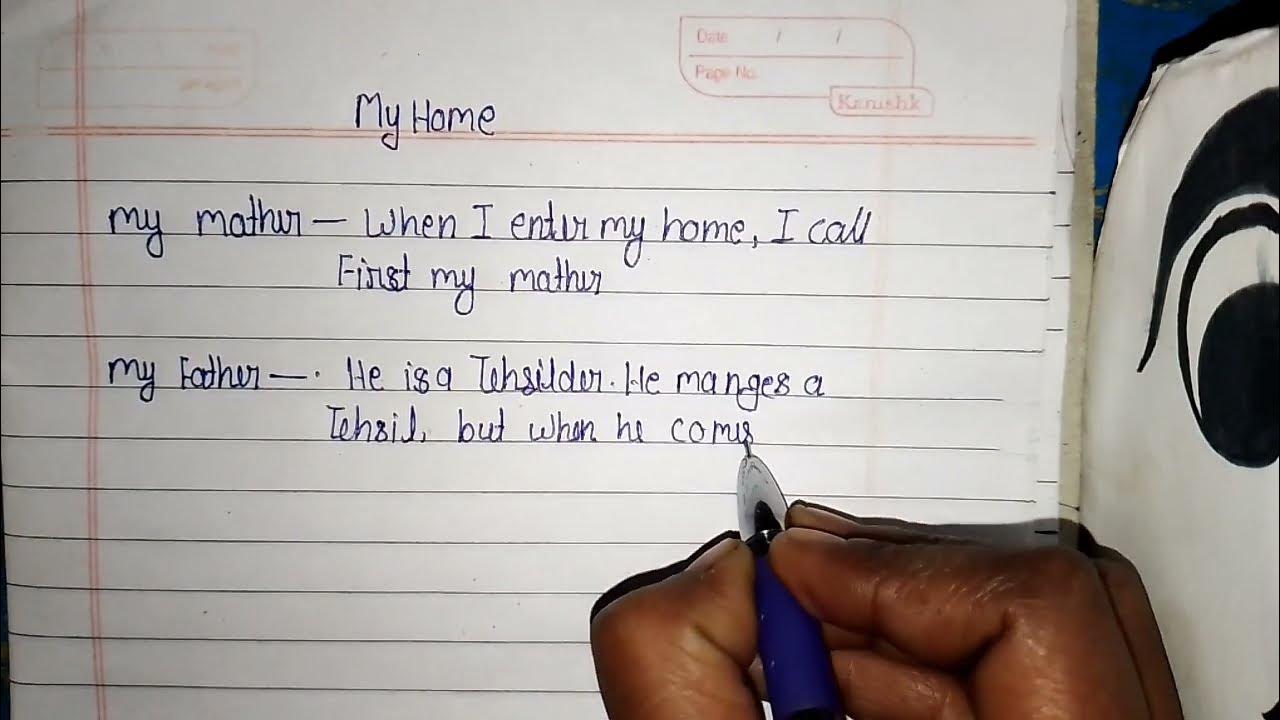 Date / /
Page No.
Kanishk
My Home
my mather — When I enter my home, I call
First my mather
my Father — . He is a Tehsilder. He manges a
Tehsil, but when he comes